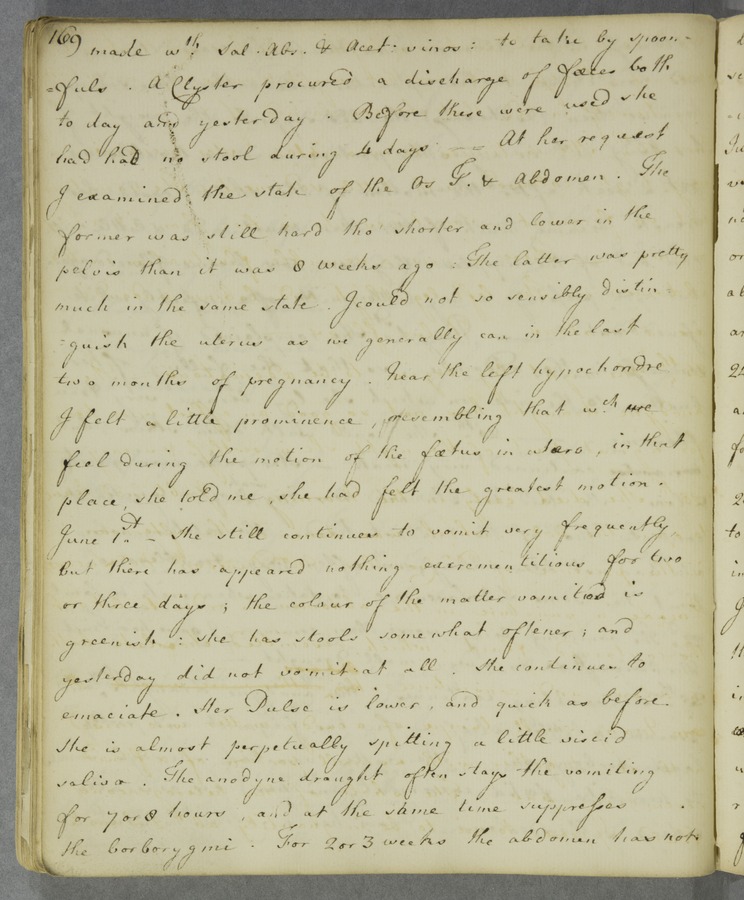 169 made wth Sal. Abs. & Acet. vinos: to take by spoon-
=fuls. A Clyster procured a discharge of fæces both
to day and yesterday. Before these were used she
had had no stool during 4 days — = At her request
I examined the state of the Os T. & Abdomen. The
former was still hard tho' shorter and lower in the
pelvis than it was 8 weeks ago: The latter was pretty
much in the same state. I could not so sensibly distin-
=guish the uterus as we generally can in the last
two months of pregnancy. Near the left hypochondre
I felt a little prominence, resembling that wch we
feel during the motion of the fœtus in utero, in that
place, she told me, she had felt the greatest motion.
June 1st - She still continues to vomit very frequently,
but there has appeared nothing excrementitious for two
or three days; the colour of the matter vomited is
greenish: she has stools somewhat oftener; and
yesterday did not vomit at all. She continues to
emaciate. Her Pulse is lower, and quick as before.
She is almost perpetually spitting a little viscid
saliva. The anodyne draught often stays the vomiting
for 7 or 8 hours, and at the same time suppresses
the borborygmi. For 2 or 3 weeks the abdomen has not